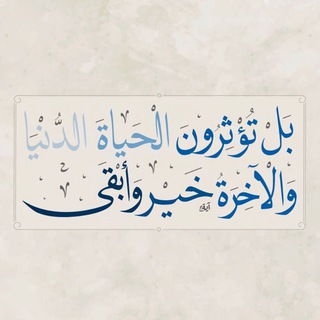 بَل تُؤْثِرُونَ الْحَيَاةَ الدُّنْيَا
وَالْآخِرَةُ خَيْرٌ وَأَبْقَى